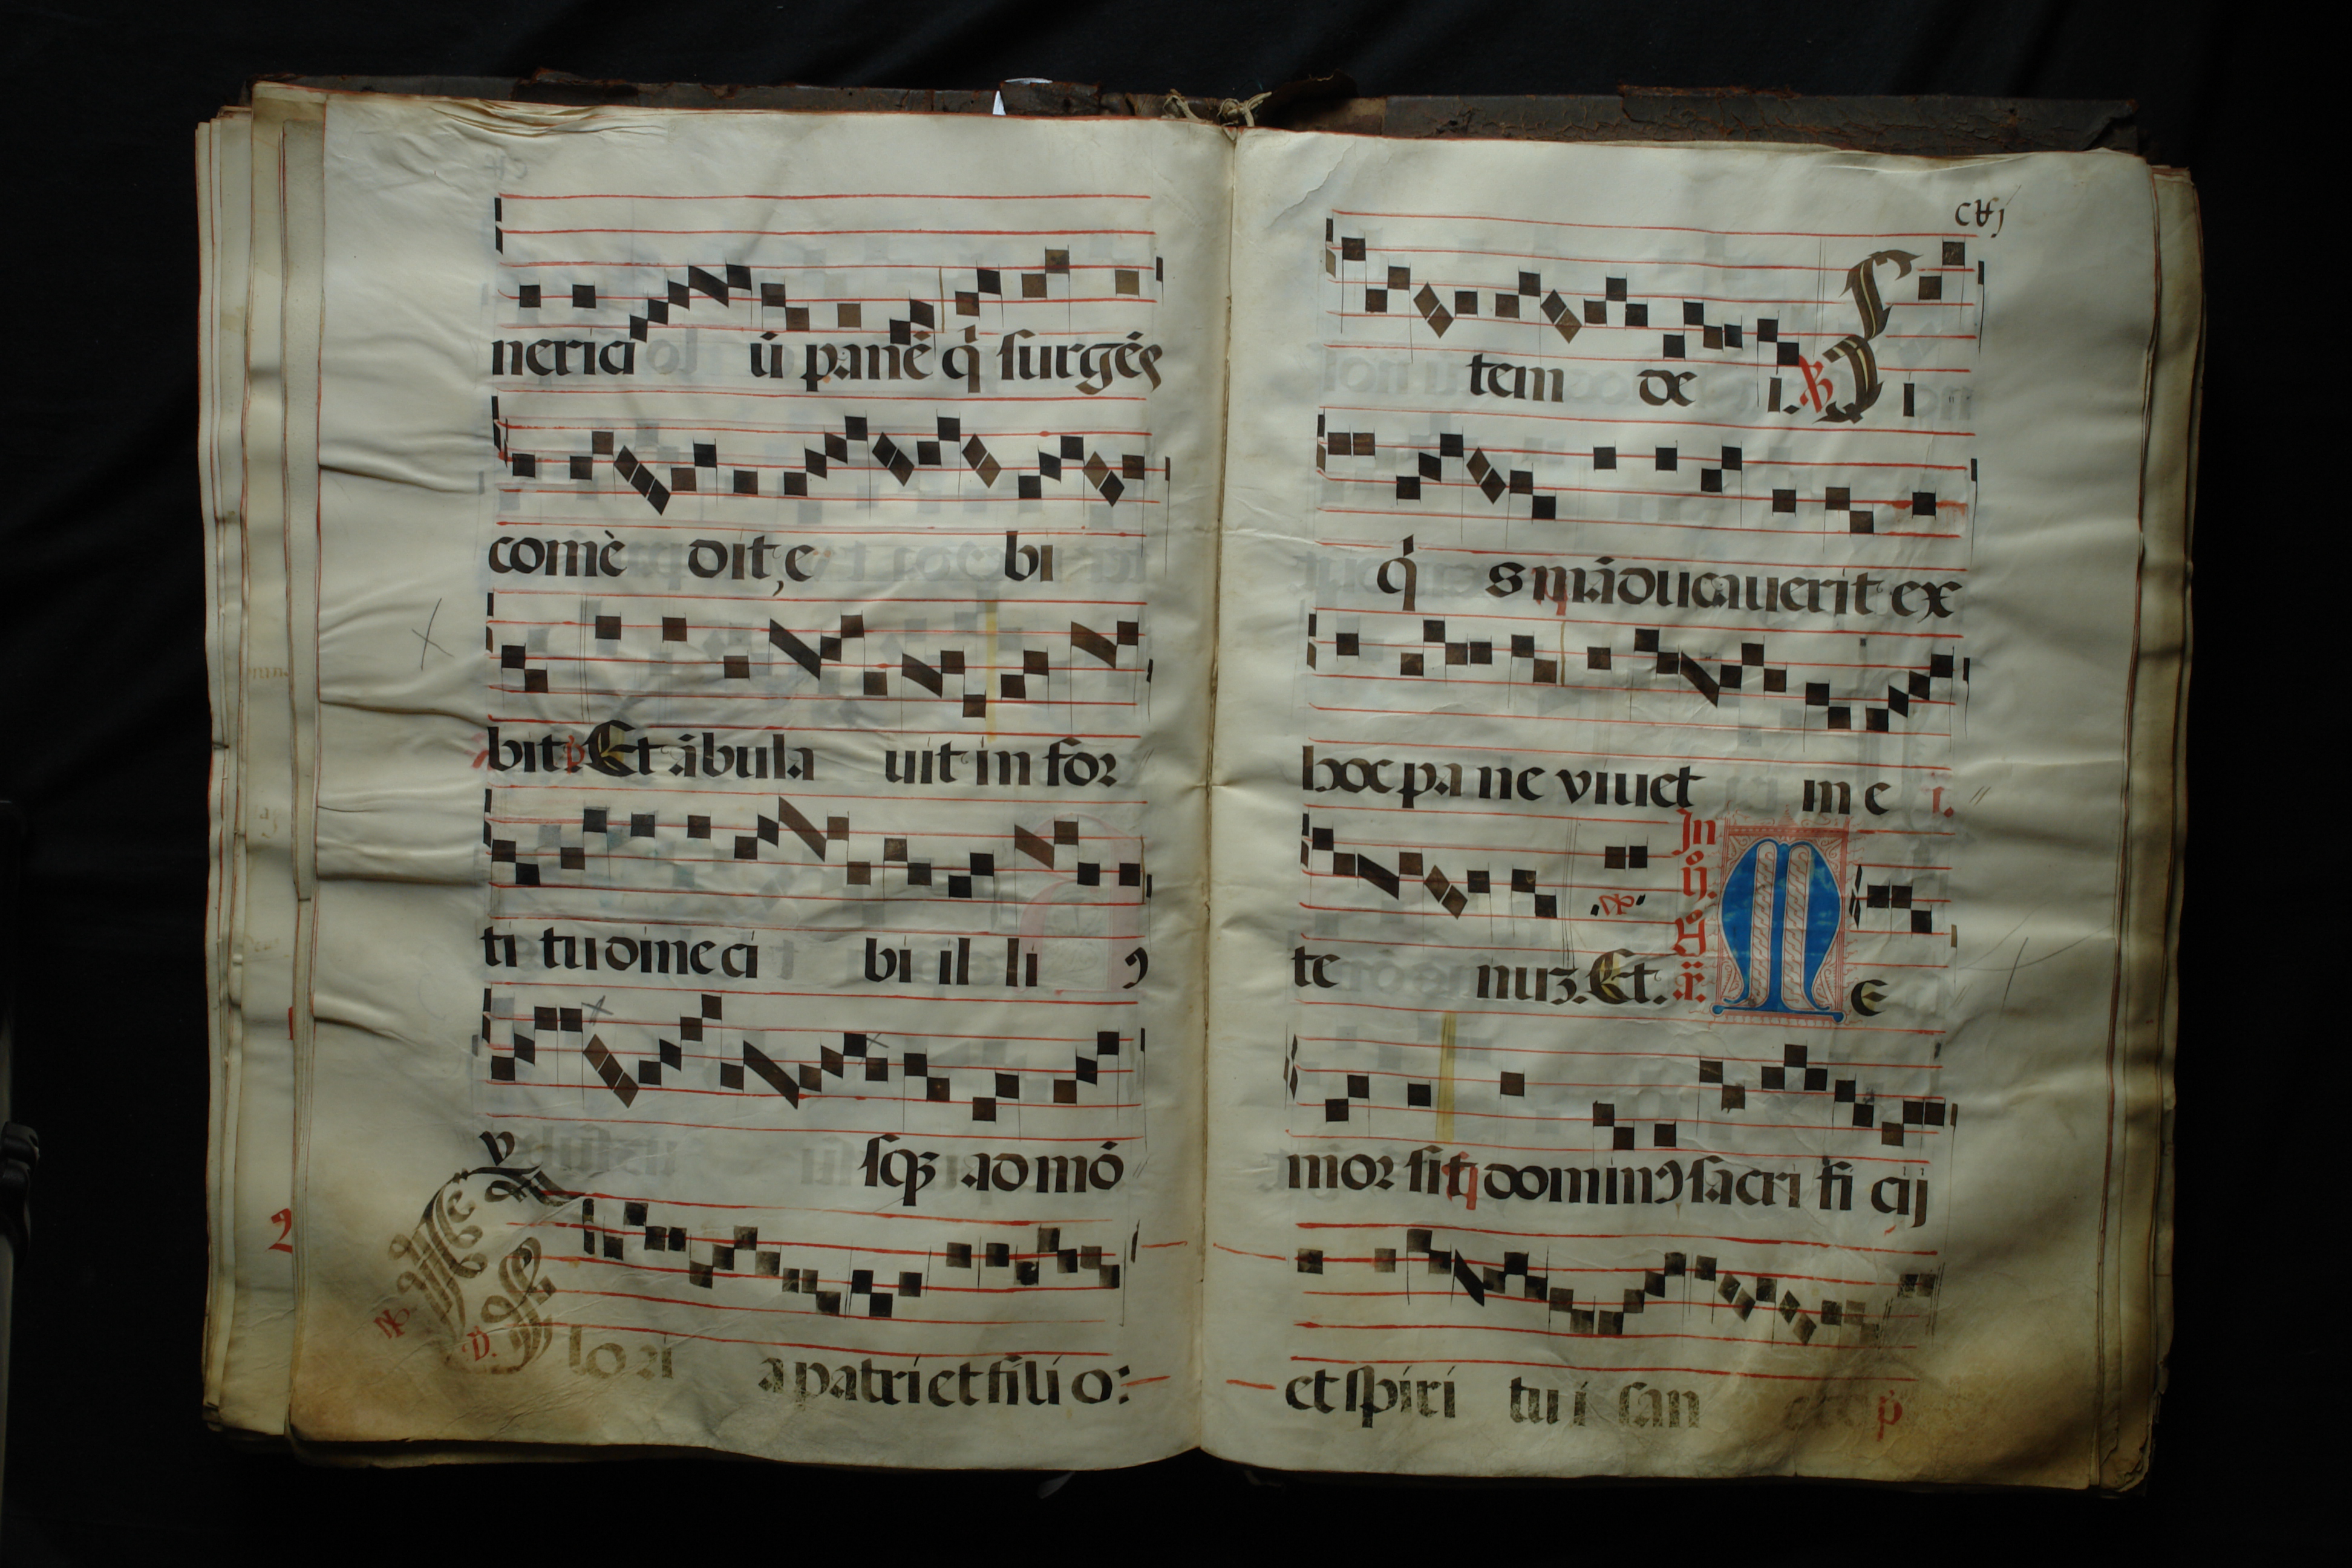 nericiū panē q̇ surgēs
comè dit, e bi
bit. Et ābula uit in for
ti tudine ci bi il li ꝯ
v sqꝫ ad mō
lori a patri et fili o:
cvj
tem de i. ℣ Si
q̇ s māducauerit ex
hoc pa ne viuet in e
te nuꝫ. Et.
In
ij.
M e
mor sit dominꝰ sacri fi cij
et spiri tu i san cto